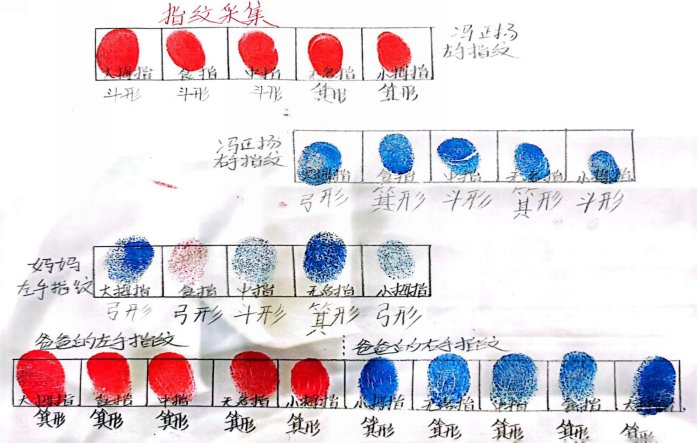 指纹采集
大拇指 食指 中指 无名指 小拇指
斗形 斗形 斗形 箕形 箕形
冯正扬
左手指纹
冯正扬
右手指纹
大拇指 食指 中指 无名指 小拇指
弓形 箕形 斗形 箕形 斗形
妈妈
左手指纹
大拇指 食指 中指 无名指 小拇指
弓形 弓形 斗形 箕形 弓形
爸爸的左手指纹 爸爸的右手指纹
大拇指 食指 中指 无名指 小拇指 小拇指 无名指 中指 食指 大拇指
箕形 箕形 箕形 箕形 箕形 箕形 箕形 箕形 箕形 箕形